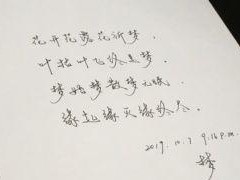 花开花落花祈梦.
叶枯叶飞终是梦.
梦始梦散梦无眠.
缘起缘灭缘终尽.
2019. 10. 7 9:16 P.M.
梦